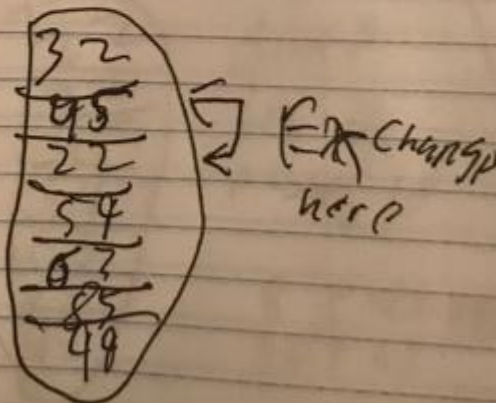 32
45
22
54
63
85
98
Exchange
here